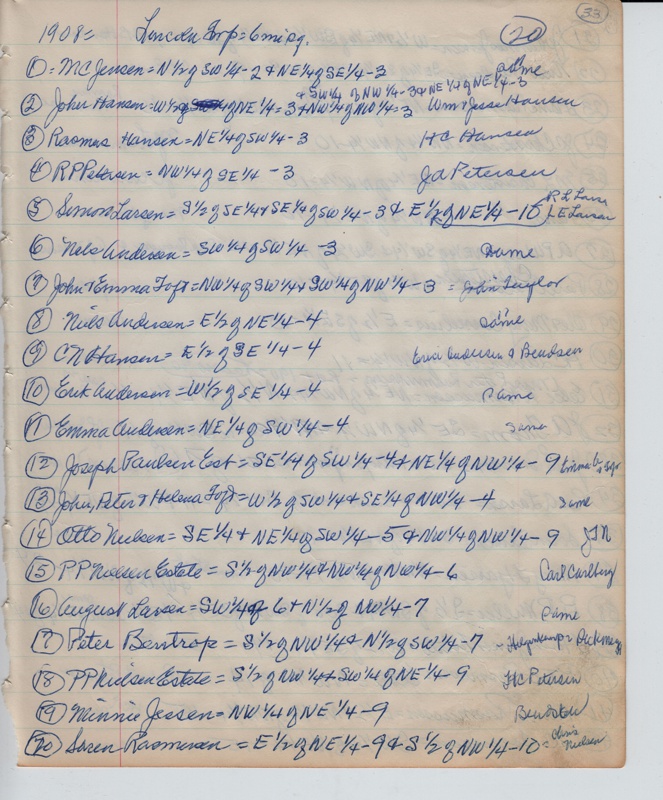 33
1908= Lincoln Twp=6misq. 20
① = MC Jensen=N½ of SW¼-2 & NE¼ of SE¼-3 same
& SW¼ of NW¼-3 & NE¼ of NE¼-3
② John Hansen=W½ of NE¼=3 & NW¼ of NW¼=3 Wm & Jesse Hansen
③ Rasmus Hansen=NE¼ of SW¼-3 HC Hansen
④ RP Petersen=NW¼ of SE¼-3 Jd Petersen
⑤ Simon Larsen=S½ of SE¼ & SE¼ of SW¼-3 & E½ of NE¼-10 R L Larsen
L E Larsen
⑥ Nels Andersen=SW¼ of SW¼-3 Same
⑦ John & Emma Toft=NW¼ of SW¼ & SW¼ of NW¼-3 = John Taylor
⑧ Niels Andersen=E½ of NE¼-4 same
⑨ CN Hansen=E½ of SE¼-4 Erick Andersen & Bendsen
⑩ Erik Andersen=W½ of SE¼-4 same
⑪ Emma Andersen=NE¼ of SW¼-4 same
⑫ Joseph Paulsen Est=SE¼ of SW¼-4 & NE¼ of NW¼-9
⑬ John, Peter & Helena Toft=W½ of SW¼ & SE¼ of NW¼-4 same
⑭ Otto Nielsen=SE¼ & NE¼ of SW¼-5 & NW¼ of NW¼-9 JN
⑮ PP Nielsen Estate=S½ of NW¼ & NW¼ of NW¼-6 Carl Carlberg
⑯ August Larsen=SW¼ of 6 & N½ of NW¼-7 same
⑰ Peter Bentrop=S½ of NW¼ & N½ of SW¼-7
⑱ PP Nielsen Estate=S½ of NW¼ & SW¼ of NE¼-9 HC Petersen
⑲ Minnie Jessen=NW¼ of NE¼-9 Bendsen
⑳ Soren Rasmussen=E½ of NE¼-9 & S½ of NW¼-10= Chris
Nielsen